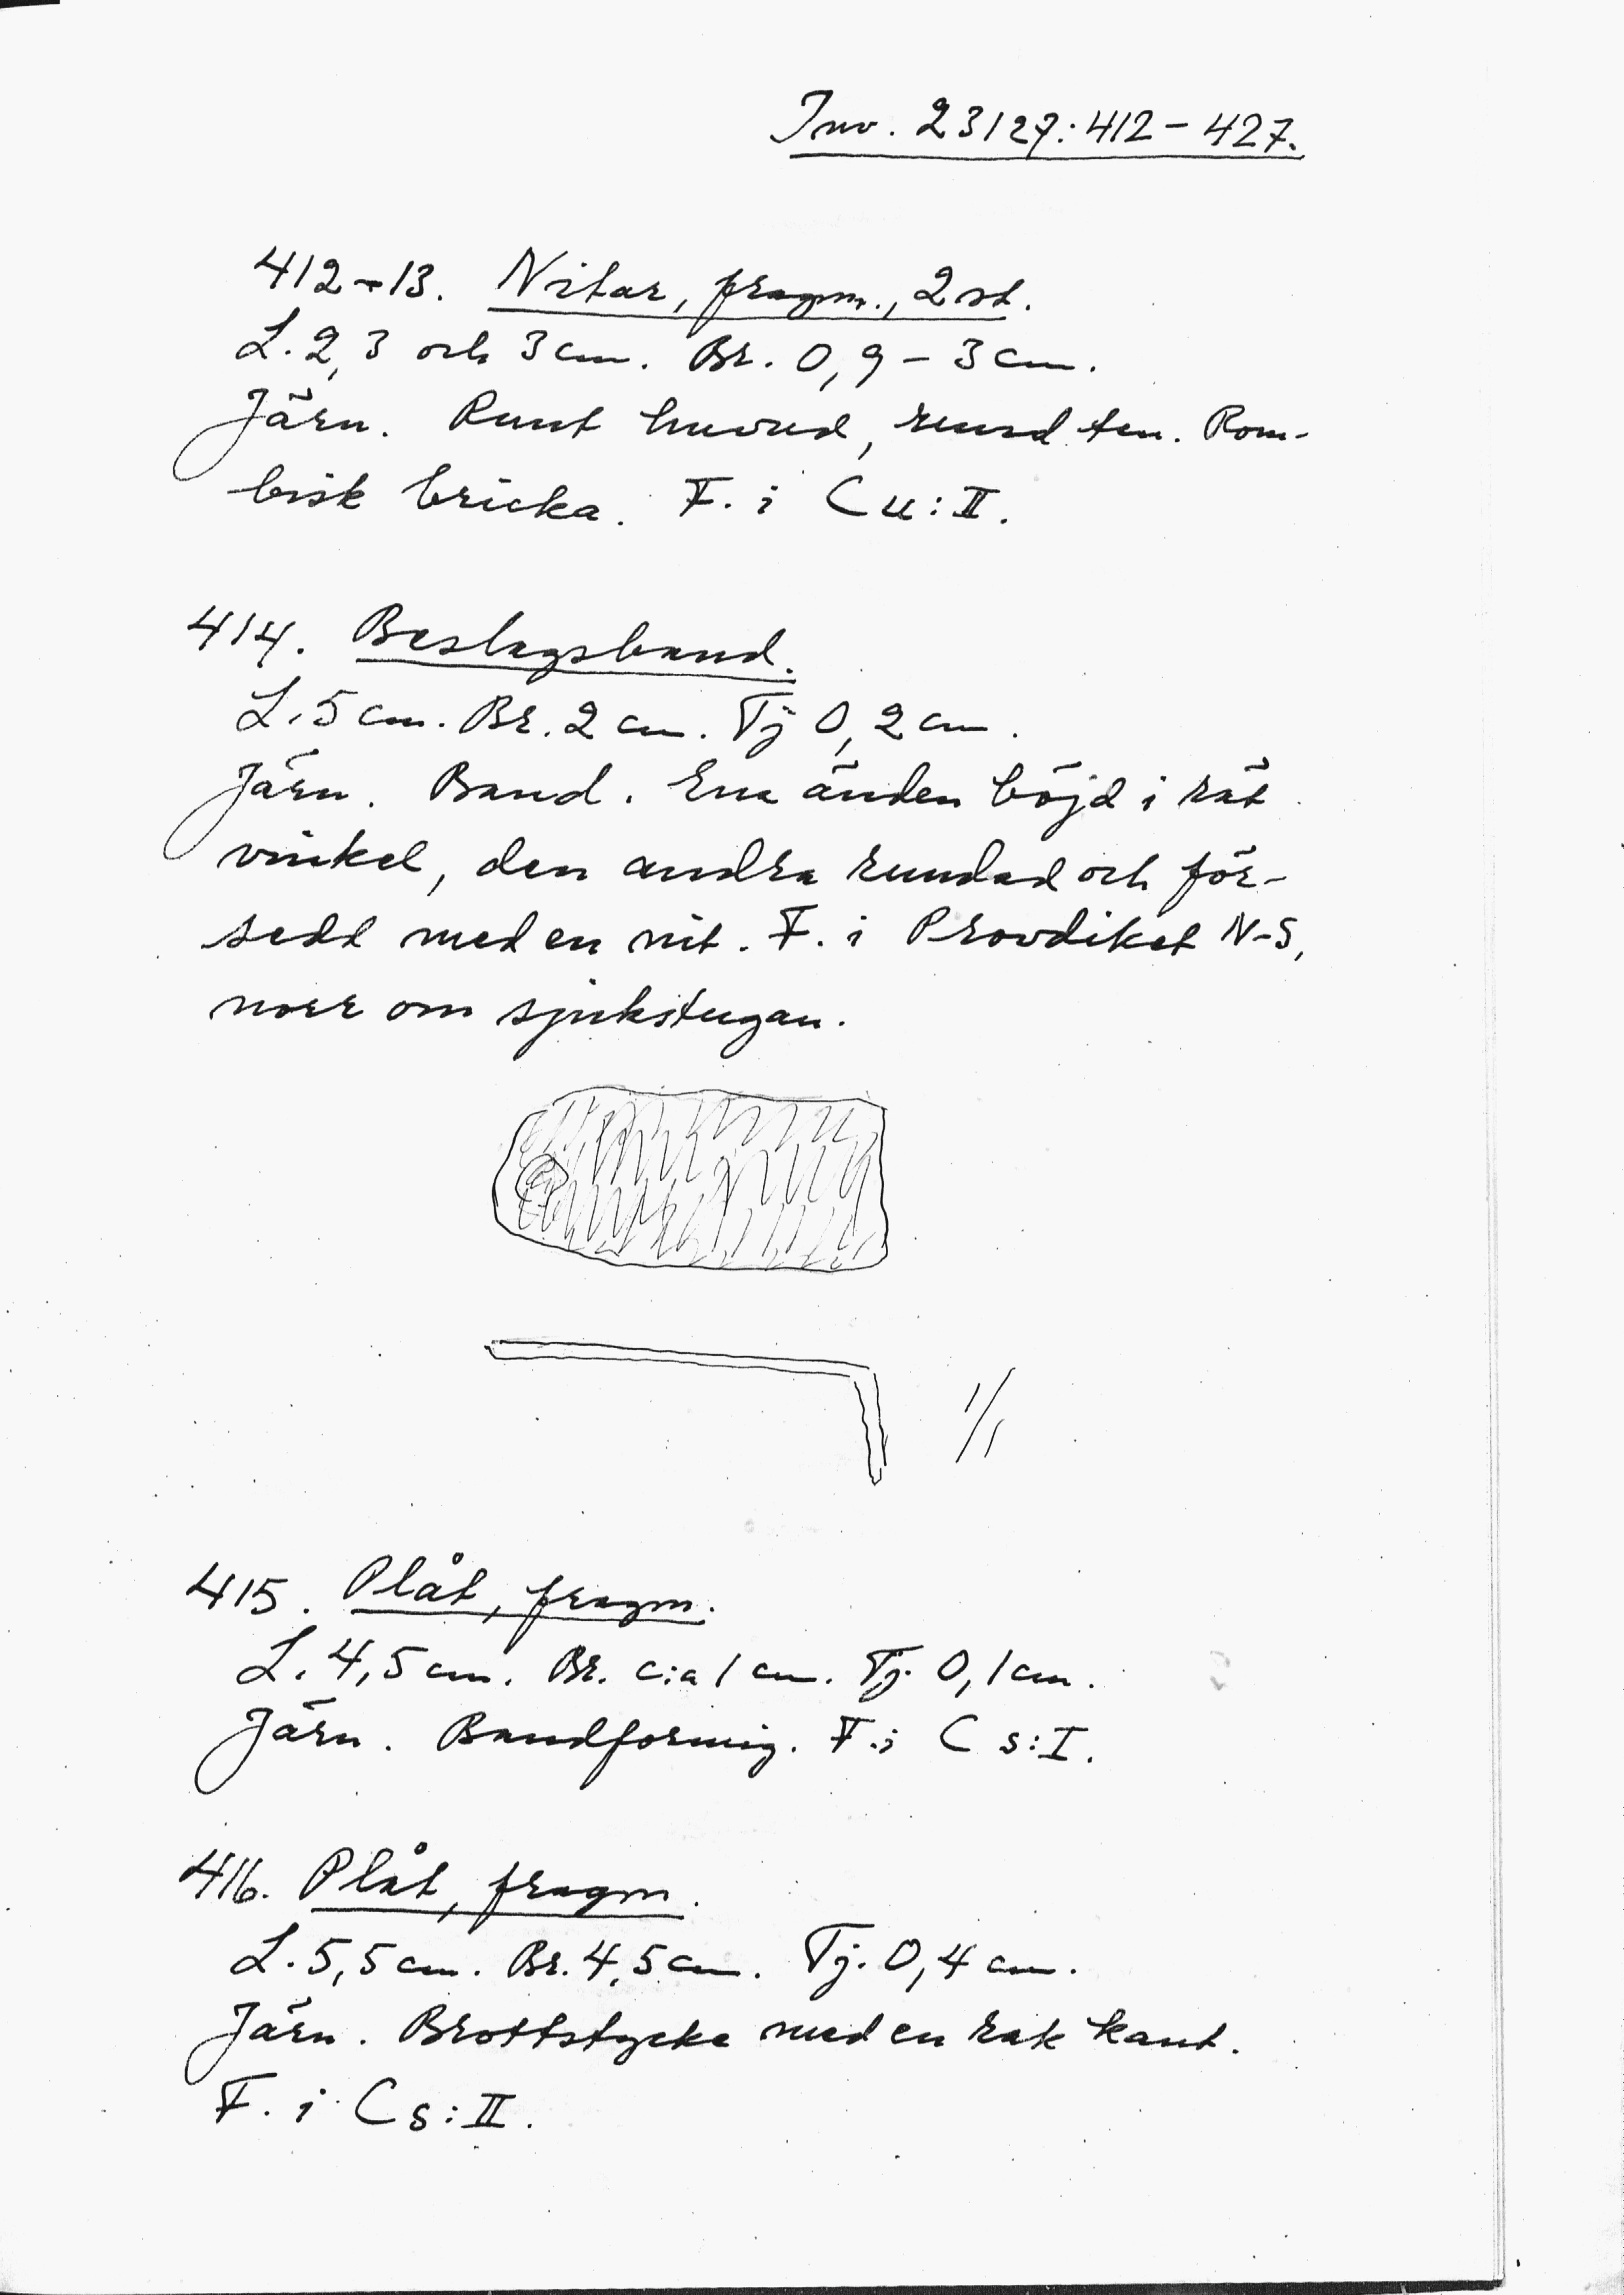 Inv. 23127:412-427.
412-13. Nitar, fragm., 2 st.
L. 2,3 och 3 cm. Br. 0,9 - 3 cm.
Järn. Runt huvud, rund ten. Rom-
bisk bricka. F. i Cu:II.
414. Beslagsband.
L. 5 cm. Br. 2 cm. Tj 0,2 cm.
Järn. Band. Ena änden böjd i rät
vinkel, den andra rundad och för-
sedd med en nit. F. i Provdiket N-S,
norr om sjukstugan.
1/1
415. Plåt, fragm.
L. 4,5 cm. Br. c:a 1 cm. Tj. 0,1 cm.
Järn. Bandformig. F. i C s:I.
416. Plåt, fragm.
L. 5,5 cm. Br. 4,5 cm. Tj. 0,4 cm.
Järn. Brottstycke med en rak kant.
F. i C s:II.